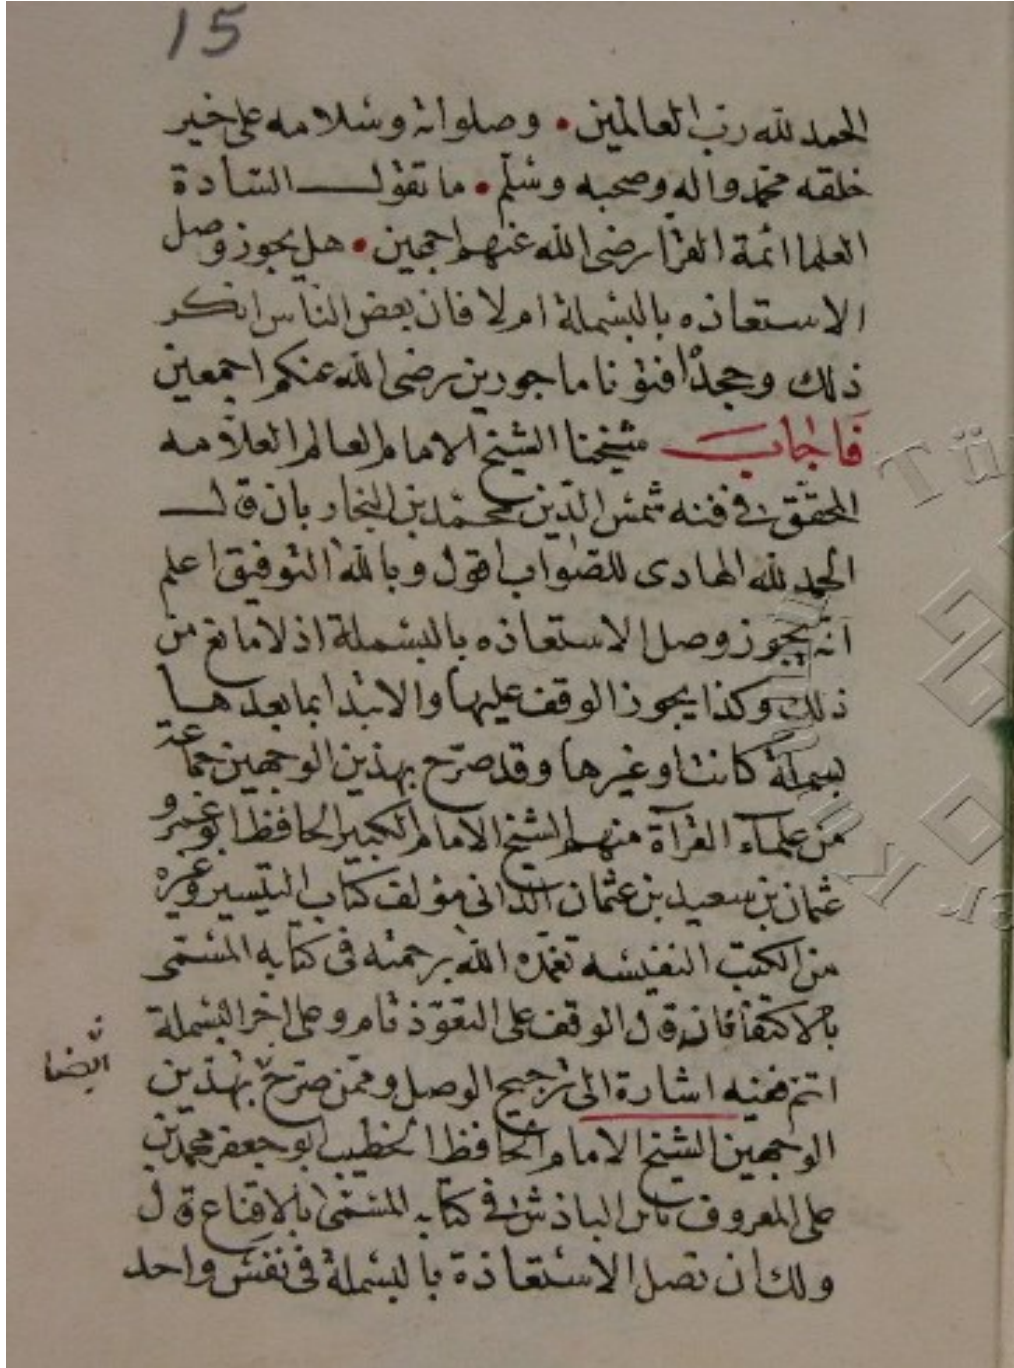 15
الحمد لله رب العالمين • وصلواته وسلامه على خير
خلقه محمد واله وصحبه وسلم • ما تقول السادة
العلما ائمة القرا رضى الله عنهم اجمعين • هل يجوز وصل
الاستعاذه بالبسملة ام لا فان بعض الناس انكر
ذلك وجحد افتونا ماجورين رضى الله عنكم اجمعين
فاجاب شيخنا الشيخ الامام العالم العلامه
المحقق فى فنه شمس الدين محمد بن النجار بان قال
الحمد لله الهادى للصواب اقول وبالله التوفيق اعلم
انه يجوز وصل الاستعاذه بالبسملة اذ لا مانع من
ذلك وكذا يجوز الوقف عليها والابتدا بما بعدها
بسملة كانت او غيرها وقد صرح بهذين الوجهين جماعة
من علماء القرآة منهم الشيخ الامام الكبير الحافظ ابو عمرو
عثمان بن سعيد بن عثمان الدانى مؤلف كتاب التيسير وغيره
من الكتب النفيسه تغمده الله برحمته فى كتابه المسمى
بالاكتفا فانه قال الوقف على التعوذ تام وعلى اخر البسملة
اتم ففيه اشارة الى ترجيح الوصل وممن صرح بهذين
ايضا
الوجهين الشيخ الامام الحافظ الخطيب ابو جعفر محمد بن
على المعروف بابن الباذش فى كتابه المسمى بالاقناع قال
ولك ان تصل الاستعاذة بالبسملة فى نفس واحد